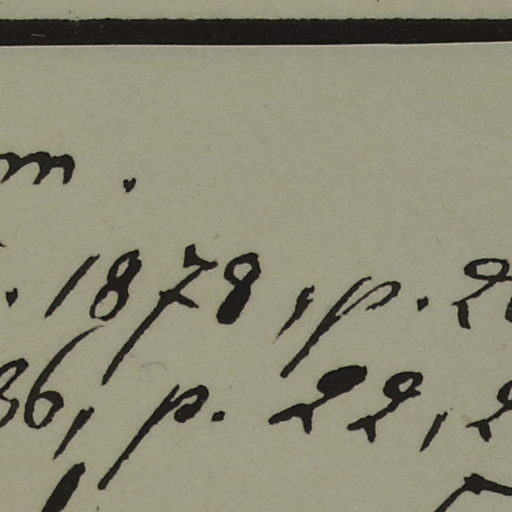 m.
. 1878, p. 2
36, p. 22, 2